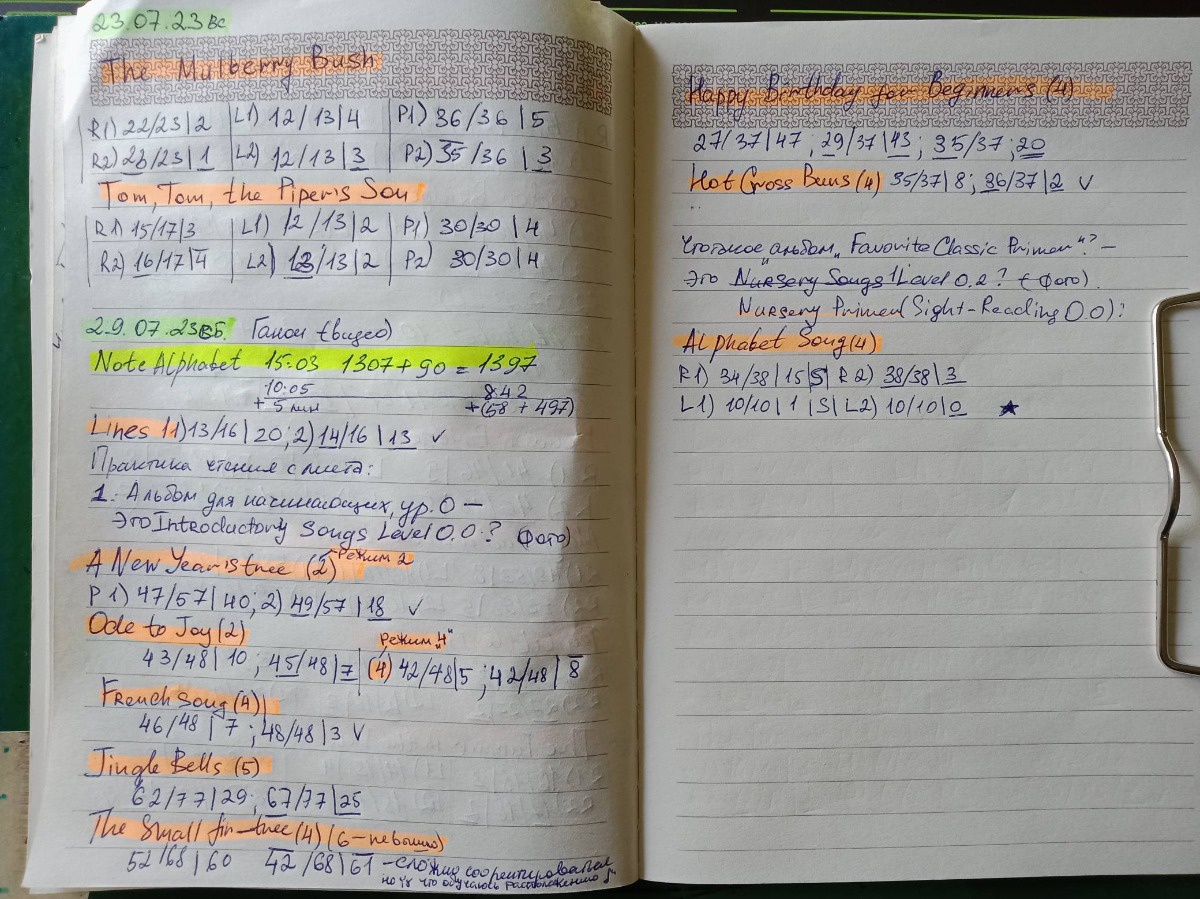 23.07.23 вс
The Mulberry Bush
R1) 22/23|2 L1) 12/13|4 P1) 36/36|5
R2) 23/23|1 L2) 12/13|3 P2) 35/36|3
Tom, Tom, the Piper's Son
R1) 15/17|3 L1) 12/13|2 P1) 30/30|4
R2) 16/17|4 L2) 13/13|2 P2) 30/30|4
29.07.23 сб. Ганон (видео)
Note Alphabet 15:03 1307+90=1397
10:05 842
+5 мин +(58+497)
Lines 1 1) 13/16|20; 2) 14/16|13 ✓
Практика чтения с листа:
1. Альбом для начинающих, ур. 0 —
Это Introductory Songs Level 0.0? (фото)
A New Year's tree (2) Режим 2
P 1) 47/57|40; 2) 49/57|18 ✓
Ode to Joy (2) режим „4"
43/48|10; 45/48|7 (4) 42/48|5; 42/48|8
French Song (4)
46/48|7; 48/48|3 ✓
Jingle Bells (5)
62/77|29; 67/77|25
The Small fir-tree (4) (6-
52/68|60 42/68|61 - сложно сориентироваться
что обучаюсь расположению
Happy Birthday for Beginners (4)
27/37|47; 29/37|43; 35/37; 20
Hot Cross Buns (4) 35/37|8; 36/37|2 ✓
Что такое альбом „Favorite Classic Primer"? —
Это Nursery Songs 1 Level 0.2? (фото)
Nursery Primer (Sight-Reading 0.0)?
Alphabet Song (4)
R1) 34/38|15|S| R2) 38/38|3
L1) 10/10|1|S| L2) 10/10|0 ★